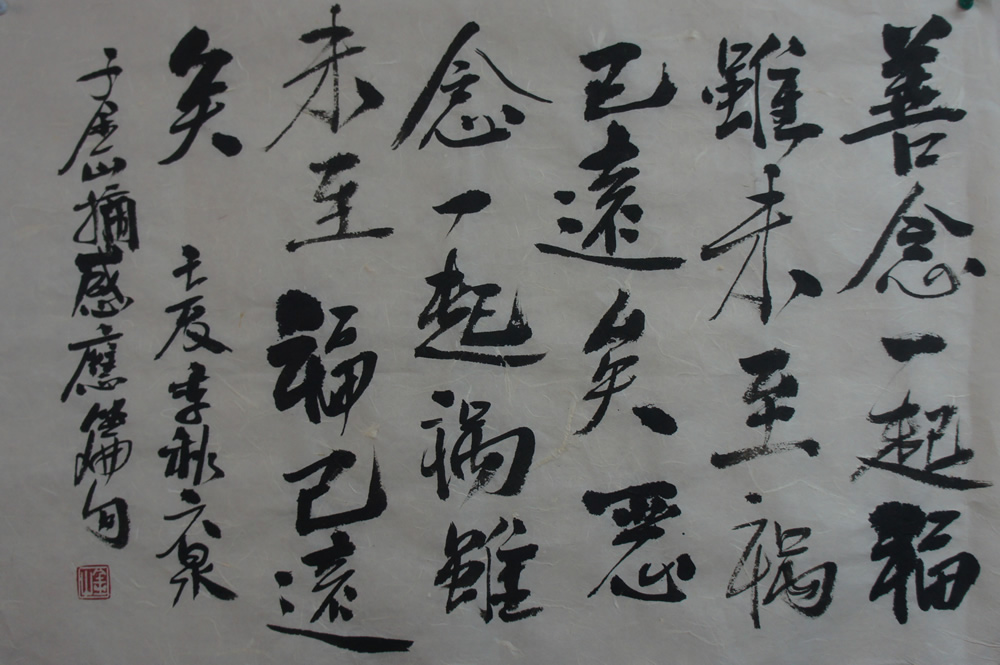 善念一起福
雖未至禍
已遠矣惡
念一起禍雖
未至福已遠
矣 壬辰季秋 泉
于金山摘感應篇句
金山